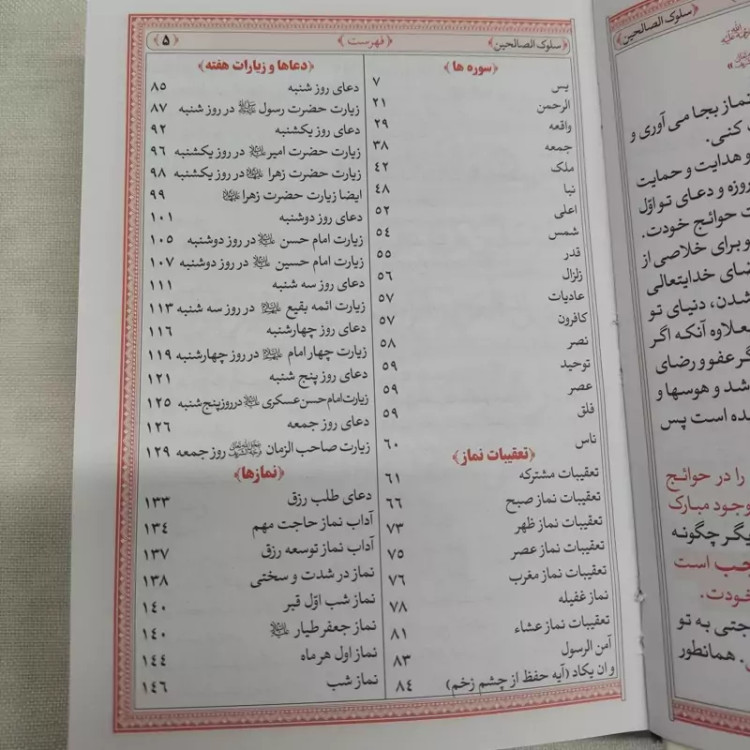 ﴿سلوک الصالحین﴾ ﴿فهرست﴾ ﴿۵﴾
﴿سوره ها﴾
یس ۷
الرحمن ۲۱
واقعه ۲۹
جمعه ۳۸
ملک ۴۲
نبا ۴۸
اعلی ۵۲
شمس ۵۴
قدر ۵۵
زلزال ۵۶
عادیات ۵۷
کافرون ۵۷
نصر ۵۸
توحید ۵۹
عصر ۵۹
فلق ۵۹
ناس ۶۰
﴿تعقیبات نماز﴾
تعقیبات مشترکه ۶۱
تعقیبات نماز صبح ۶۶
تعقیبات نماز ظهر ۷۳
تعقیبات نماز عصر ۷۵
تعقیبات نماز مغرب ۷۶
نماز غفیله ۷۸
تعقیبات نماز عشاء ۸۱
آمن الرسول ۸۳
و ان یکاد (آیه حفظ از چشم زخم) ۸۴
﴿دعاها و زیارات هفته﴾
دعای روز شنبه ۸۵
زیارت حضرت رسول ﷺ در روز شنبه ۸۷
دعای روز یکشنبه ۹۲
زیارت حضرت امیر در روز یکشنبه ۹۶
زیارت حضرت زهرا در روز یکشنبه ۹۸
ایضا زیارت حضرت زهرا ۹۹
دعای روز دوشنبه ۱۰۱
زیارت امام حسن در روز دوشنبه ۱۰۵
زیارت امام حسین در روز دوشنبه ۱۰۷
دعای روز سه شنبه ۱۱۱
زیارت ائمه بقیع در روز سه شنبه ۱۱۳
دعای روز چهارشنبه ۱۱۶
زیارت چهار امام در روز چهارشنبه ۱۱۹
دعای روز پنج شنبه ۱۲۱
زیارت امام حسن عسکری در روز پنج شنبه ۱۲۵
دعای روز جمعه ۱۲۶
زیارت صاحب الزمان روز جمعه ۱۲۹
﴿نمازها﴾
دعای طلب رزق ۱۳۳
آداب نماز حاجت مهم ۱۳۴
آداب نماز توسعه رزق ۱۳۷
نماز در شدت و سختی ۱۳۸
نماز شب اوّل قبر ۱۴۰
نماز جعفر طیار ۱۴۰
نماز اول هر ماه ۱۴۴
نماز شب ۱۴۶
﴿سلوک الصالحین﴾
نماز بجا می آوری و
کنی.
و هدایت و حمایت
روزه و دعای تو اوّل
حوائج خودت.
و برای خلاصی از
خدایتعالی
شدن، دنیای تو
بعلاوه آنکه اگر
عفو و رضای
شد و هوسها و
ده است پس
را در حوائج
وجود مبارک
یگر چگونه
است
خودت.
جتی به تو
همانطور